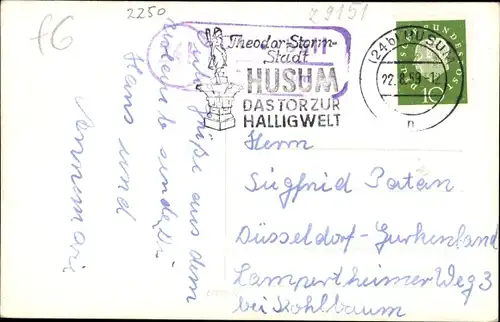 f6
2250
z 9151
Theodor-Storm-
Stadt
HUSUM
DAS TOR ZUR
HALLIGWELT
(24b) HUSUM
22.8.59-12
n
BUNDESPOST
10
Herrn
Siegfried Patan
Düsseldorf-Gurkenland
Lampertheimer Weg 3
bei Kohlbaum
Grüße aus dem
sendet
Hans und
Annmarie